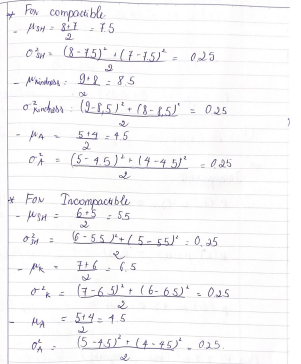 * For compactible
- μSH = 8+7/2 = 7.5
σ²SH = (8-7.5)² + (7-7.5)²/2 = 0.25
- μkindness: 9+8/2 = 8.5
σ²kindness: (9-8.5)² + (8-8.5)²/2 = 0.25
- μA = 5+4/2 = 4.5
σ²A = (5-4.5)² + (4-4.5)²/2 = 0.25
* For Incompactible
- μSH = 6+5/2 = 5.5
σ²SH = (6-5.5)² + (5-5.5)²/2 = 0.25
- μK = 7+6/2 = 6.5
σ²K = (7-6.5)² + (6-6.5)²/2 = 0.25
- μA = 5+4/2 = 4.5
σ²A = (5-4.5)² + (4-4.5)²/2 = 0.25